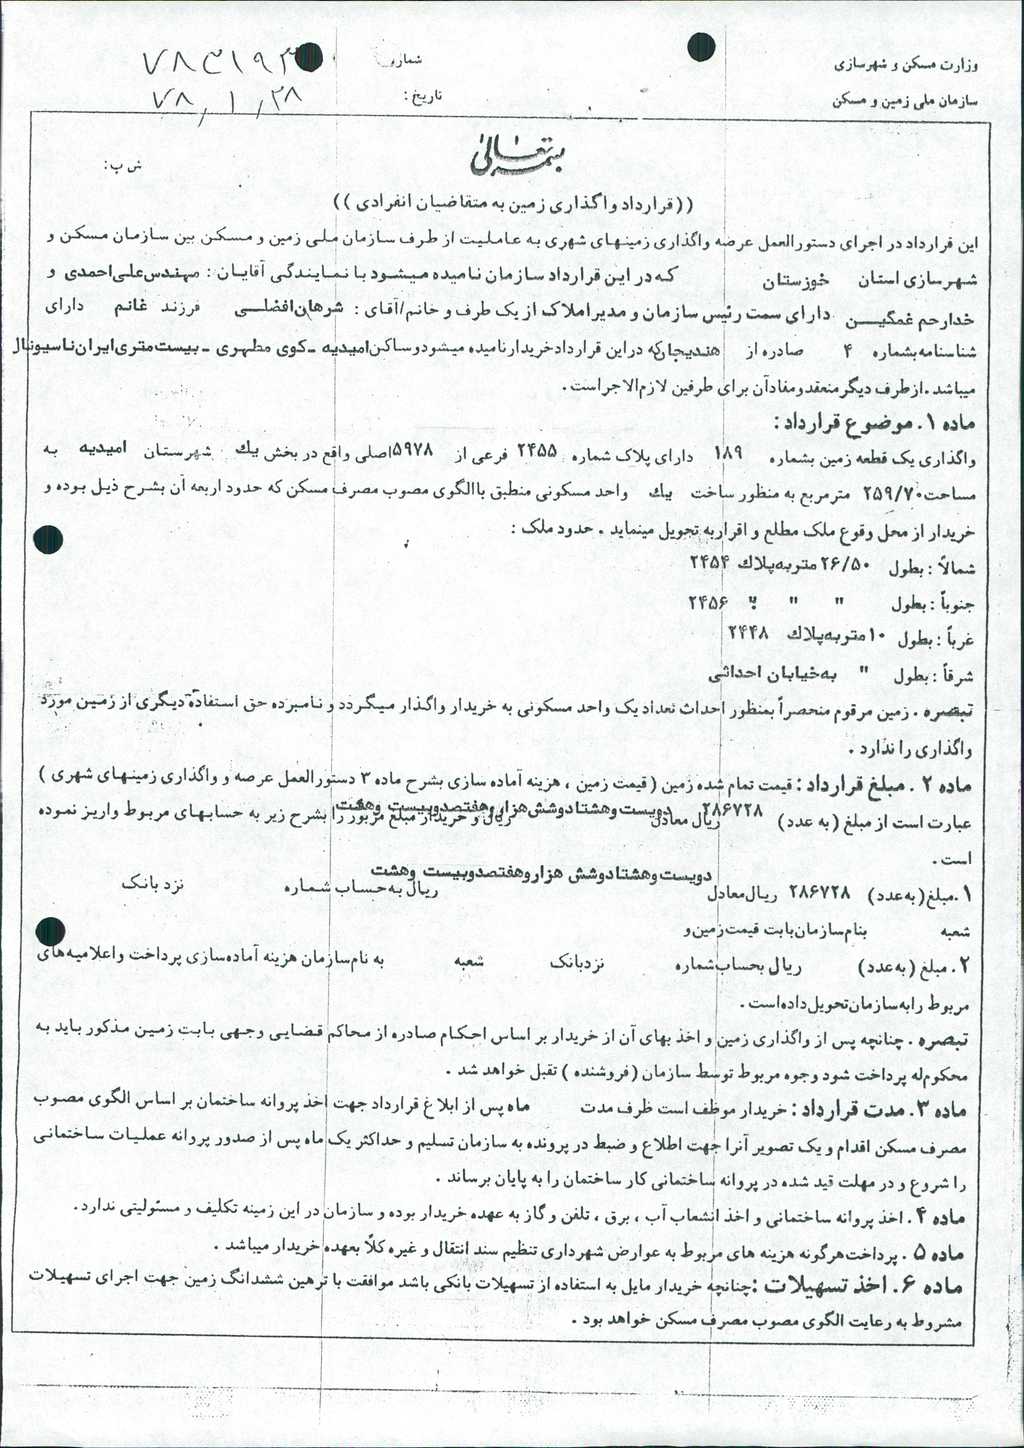 وزارت مسکن و شهرسازی
سازمان ملی زمین و مسکن
شماره
تاریخ : ۷۸/۱/۲۸
بسمه تعالی
ش ب:
((قرارداد واگذاری زمین به متقاضیان انفرادی))
این قرارداد در اجرای دستورالعمل عرضه واگذاری زمینهای شهری به عاملیت از طرف سازمان ملی زمین و مسکن بین سازمان مسکن و
شهرسازی استان خوزستان که در این قرارداد سازمان نامیده میشود با نمایندگی آقایان : مهندس علی احمدی و
خدارحم غمگین دارای سمت رئیس سازمان و مدیر املاک از یک طرف و خانم/آقای : شرهان افضلی فرزند غانم دارای
شناسنامه بشماره ۴ صادره از هندیجان که در این قرارداد خریدار نامیده میشود و ساکن امیدیه ـ کوی مطهری ـ بیست متری ایران ناسیونال
میباشد .از طرف دیگر منعقد و مفاد آن برای طرفین لازم الاجراست.
ماده ۱. موضوع قرارداد:
واگذاری یک قطعه زمین بشماره ۱۸۹ دارای پلاک شماره ۲۴۵۵ فرعی از ۵۹۷۸ اصلی واقع در بخش یك شهرستان امیدیه به
مساحت ۲۵۹/۷۰ مترمربع به منظور ساخت یك واحد مسکونی منطبق باالگوی مصوب مصرف مسکن که حدود اربعه آن بشرح ذیل بوده و
خریدار از محل وقوع ملک مطلع و اقرار به تحویل مینماید . حدود ملک :
شمالاً : بطول ۲۶/۵۰ متر به پلاك ۲۴۵۴
جنوباً : بطول " " " ۲۴۵۶
غرباً : بطول ۱۰ متر به پلاك ۲۴۴۸
شرقاً : بطول " به خیابان احداثی
تبصره . زمین مرقوم منحصراً بمنظور احداث تعداد یک واحد مسکونی به خریدار واگذار میگردد و نامبرده حق استفاده دیگری از زمین مورد
واگذاری را ندارد .
ماده ۲ . مبلغ قرارداد : قیمت تمام شده زمین ( قیمت زمین ، هزینه آماده سازی بشرح ماده ۳ دستورالعمل عرضه و واگذاری زمینهای شهری )
عبارت است از مبلغ ( به عدد ) ۲۸۶۷۲۸ ریال معادل دویست و هشتاد و شش هزار و هفتصد و بیست و هشت ریال و خریدار مبلغ مزبور را بشرح زیر به حسابهای مربوط واریز نموده
است .
۱. مبلغ (به عدد) ۲۸۶۷۲۸ ریال معادل دویست و هشتاد و شش هزار و هفتصد و بیست و هشت ریال به حساب شماره نزد بانک
شعبه بنام سازمان بابت قیمت زمین و
۲. مبلغ (به عدد) ریال بحساب شماره نزد بانک شعبه به نام سازمان هزینه آماده سازی پرداخت و اعلامیه های
مربوط را به سازمان تحویل داده است .
تبصره . چنانچه پس از واگذاری زمین و اخذ بهای آن از خریدار بر اساس احکام صادره از محاکم قضایی وجهی بابت زمین مذکور باید به
محکوم له پرداخت شود وجوه مربوط توسط سازمان ( فروشنده ) تقبل خواهد شد .
ماده ۳. مدت قرارداد : خریدار موظف است ظرف مدت ماه پس از ابلاغ قرارداد جهت اخذ پروانه ساختمان بر اساس الگوی مصوب
مصرف مسکن اقدام و یک تصویر آنرا جهت اطلاع و ضبط در پرونده به سازمان تسلیم و حداکثر یک ماه پس از صدور پروانه عملیات ساختمانی
را شروع و در مهلت قید شده در پروانه ساختمانی کار ساختمان را به پایان برساند .
ماده ۴. اخذ پروانه ساختمانی و اخذ انشعاب آب ، برق ، تلفن و گاز به عهده خریدار بوده و سازمان در این زمینه تکلیف و مسئولیتی ندارد.
ماده ۵ . پرداخت هرگونه هزینه های مربوط به عوارض شهرداری تنظیم سند انتقال و غیره کلاً بعهده خریدار میباشد .
ماده ۶. اخذ تسهیلات : چنانچه خریدار مایل به استفاده از تسهیلات بانکی باشد موافقت با ترهین ششدانگ زمین جهت اجرای تسهیلات
مشروط به رعایت الگوی مصوب مصرف مسکن خواهد بود .